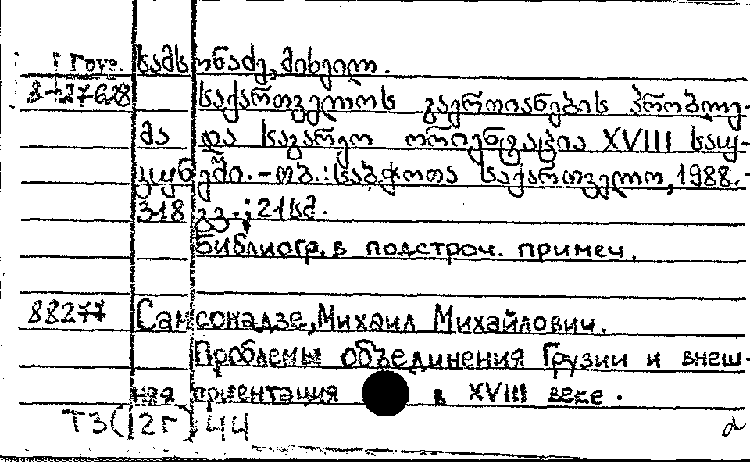 Груз. სამსონაძე, მიხეილ.
2-27628 საქართველოს გაერთიანების პრობლე-
მა და საგარეო ორიენტაცია XVIII საუ-
კუნეში. - თბ.: საბჭოთა საქართველო, 1988. -
318 გვ.; 21 სმ.
Библиогр. в подстроч. примеч.
88277 Самсонадзе, Михаил Михайлович.
Проблемы объединения Грузии и внеш-
няя ориентация в XVIII веке.
Т3(2Г)44